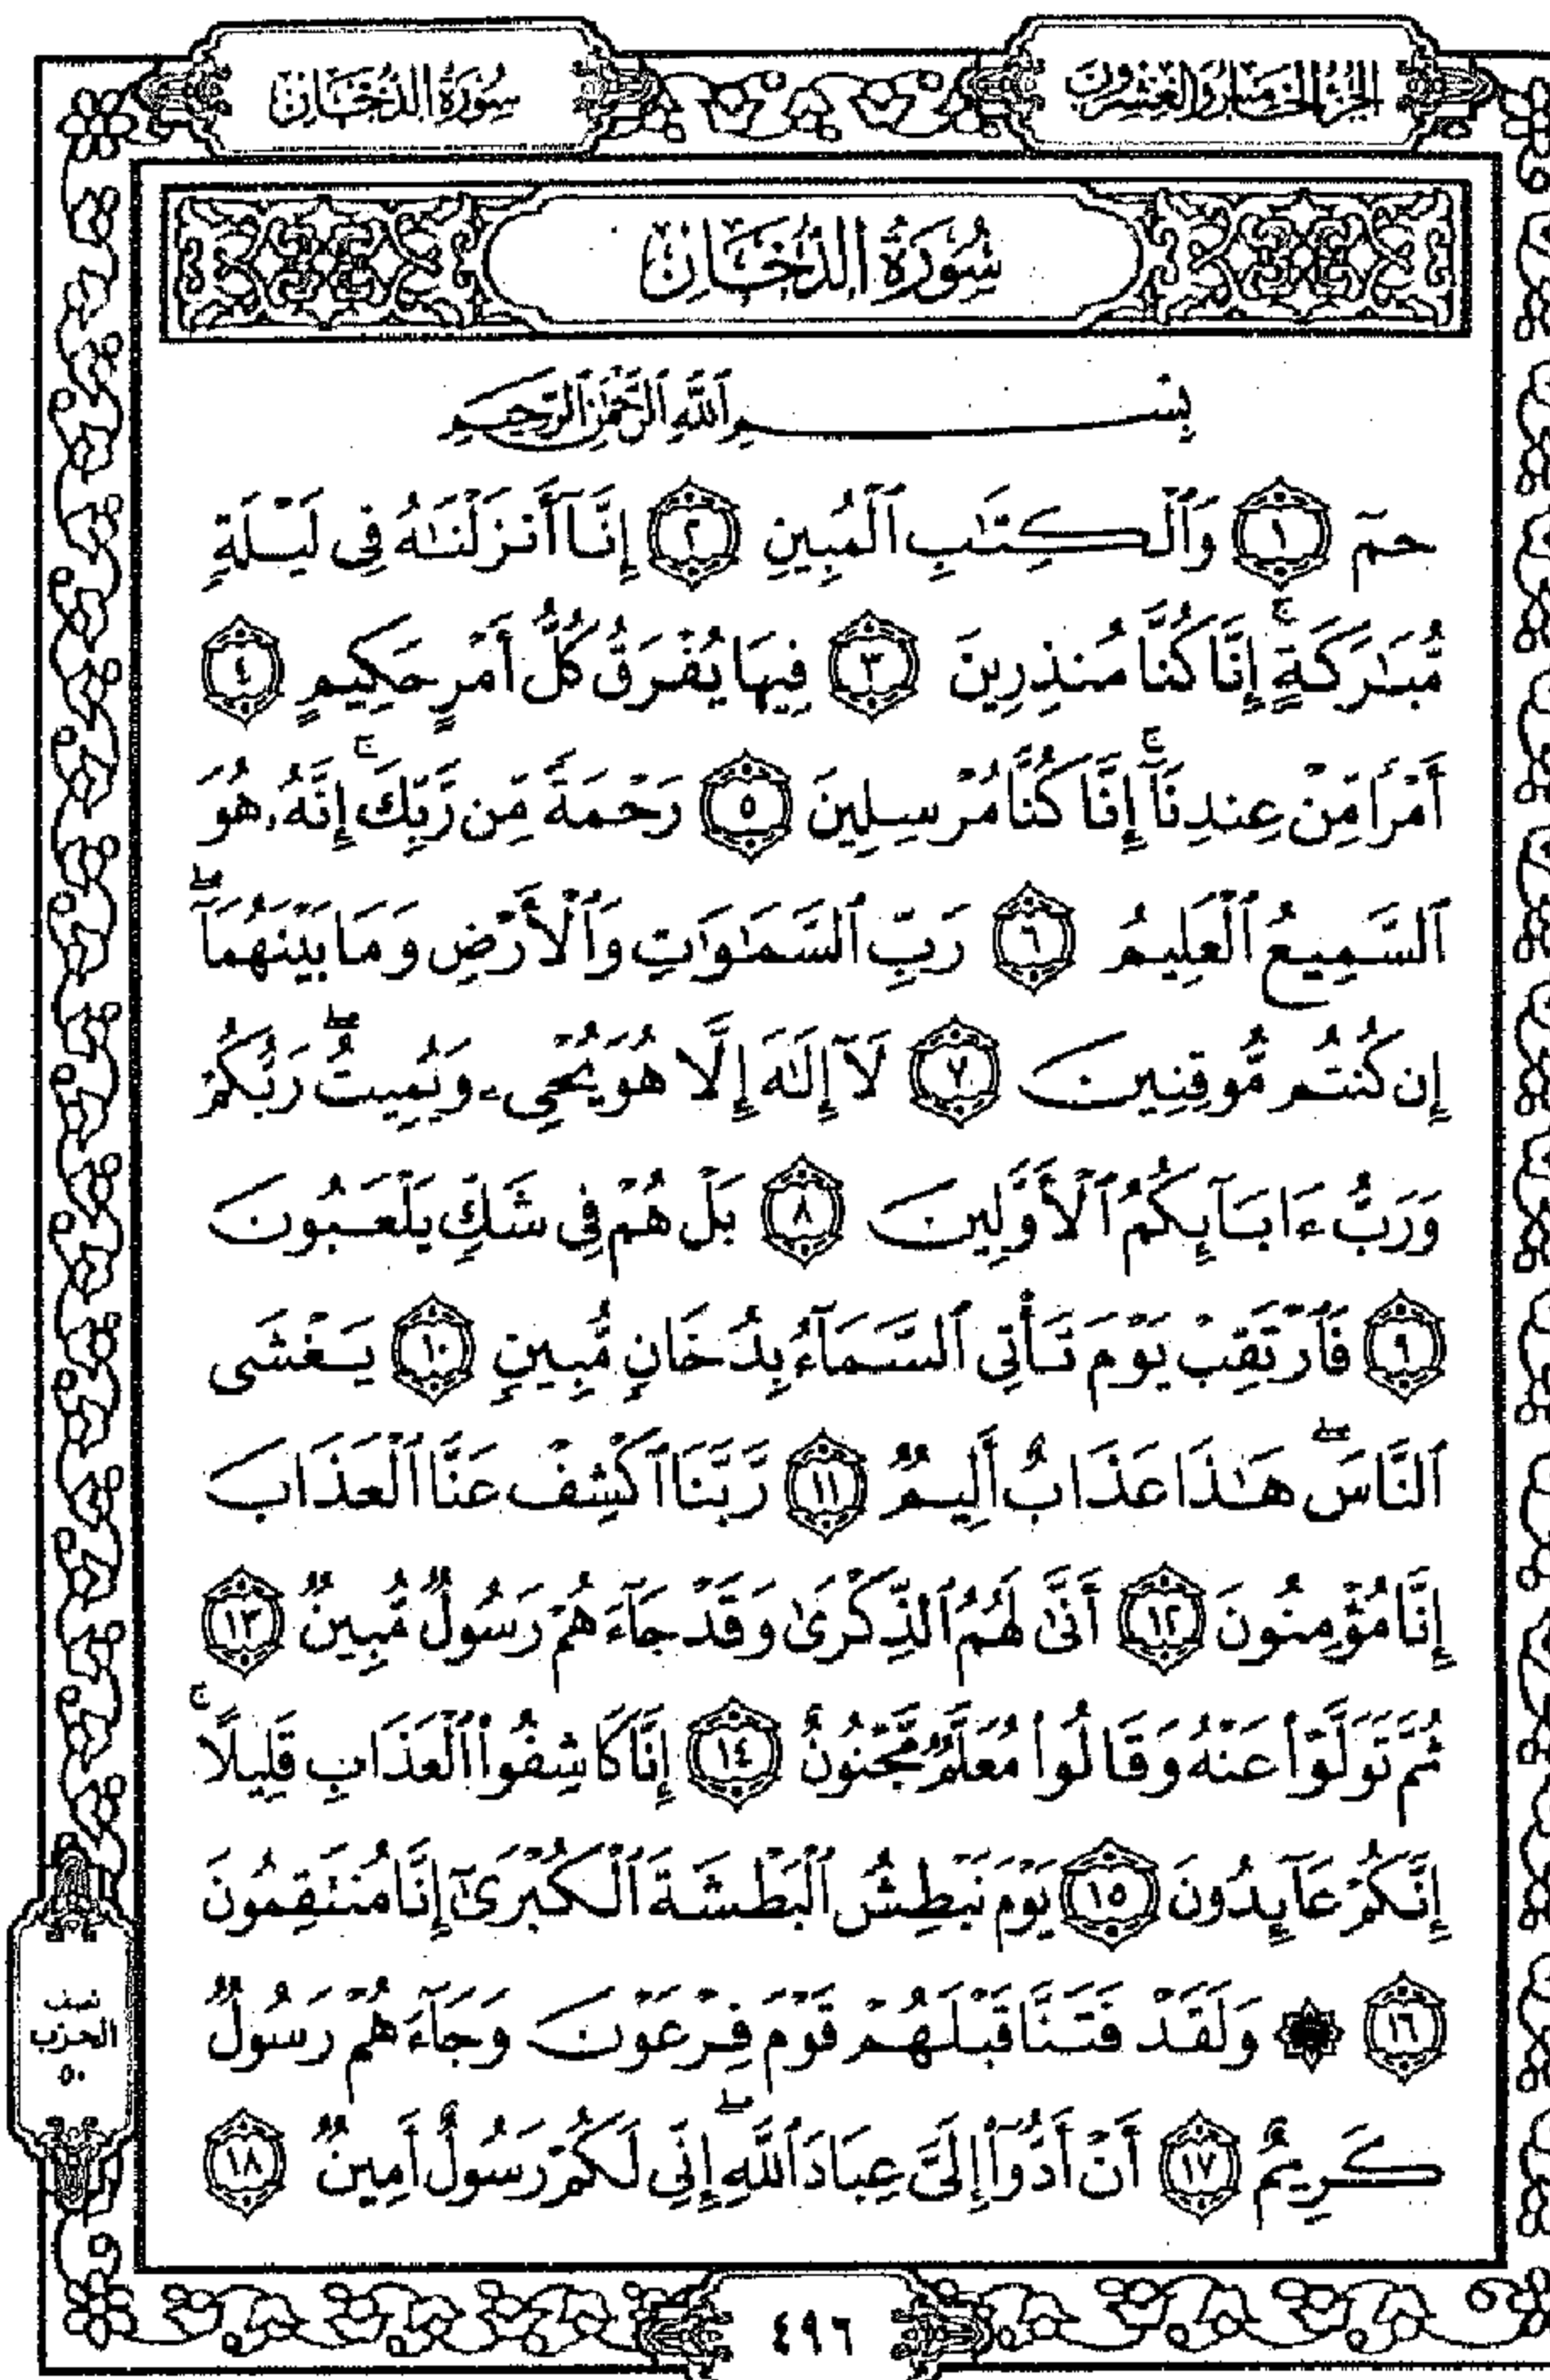 الجزء الخامس والعشرون
سورة الدخان
سُورَةُ الدُّخَانِ
بِسْمِ ٱللَّهِ ٱلرَّحْمَٰنِ ٱلرَّحِيمِ
حمٓ ١ وَٱلْكِتَٰبِ ٱلْمُبِينِ ٢ إِنَّآ أَنزَلْنَٰهُ فِى لَيْلَةٍ
مُّبَٰرَكَةٍ ۚ إِنَّا كُنَّا مُنذِرِينَ ٣ فِيهَا يُفْرَقُ كُلُّ أَمْرٍ حَكِيمٍ ٤
أَمْرًا مِّنْ عِندِنَآ ۚ إِنَّا كُنَّا مُرْسِلِينَ ٥ رَحْمَةً مِّن رَّبِّكَ ۚ إِنَّهُۥ هُوَ
ٱلسَّمِيعُ ٱلْعَلِيمُ ٦ رَبِّ ٱلسَّمَٰوَٰتِ وَٱلْأَرْضِ وَمَا بَيْنَهُمَآ ۖ
إِن كُنتُم مُّوقِنِينَ ٧ لَآ إِلَٰهَ إِلَّا هُوَ يُحْىِۦ وَيُمِيتُ ۖ رَبُّكُمْ
وَرَبُّ ءَابَآئِكُمُ ٱلْأَوَّلِينَ ٨ بَلْ هُمْ فِى شَكٍّ يَلْعَبُونَ
٩ فَٱرْتَقِبْ يَوْمَ تَأْتِى ٱلسَّمَآءُ بِدُخَانٍ مُّبِينٍ ١٠ يَغْشَى
ٱلنَّاسَ ۖ هَٰذَا عَذَابٌ أَلِيمٌ ١١ رَّبَّنَا ٱكْشِفْ عَنَّا ٱلْعَذَابَ
إِنَّا مُؤْمِنُونَ ١٢ أَنَّىٰ لَهُمُ ٱلذِّكْرَىٰ وَقَدْ جَآءَهُمْ رَسُولٌ مُّبِينٌ ١٣
ثُمَّ تَوَلَّوْا۟ عَنْهُ وَقَالُوا۟ مُعَلَّمٌ مَّجْنُونٌ ١٤ إِنَّا كَاشِفُوا۟ ٱلْعَذَابِ قَلِيلًا ۚ
إِنَّكُمْ عَآئِدُونَ ١٥ يَوْمَ نَبْطِشُ ٱلْبَطْشَةَ ٱلْكُبْرَىٰٓ إِنَّا مُنتَقِمُونَ
١٦ ۞ وَلَقَدْ فَتَنَّا قَبْلَهُمْ قَوْمَ فِرْعَوْنَ وَجَآءَهُمْ رَسُولٌ
كَرِيمٌ ١٧ أَنْ أَدُّوٓا۟ إِلَىَّ عِبَادَ ٱللَّهِ ۖ إِنِّى لَكُمْ رَسُولٌ أَمِينٌ ١٨
نصف
الحزب
٥٠
٤٩٦